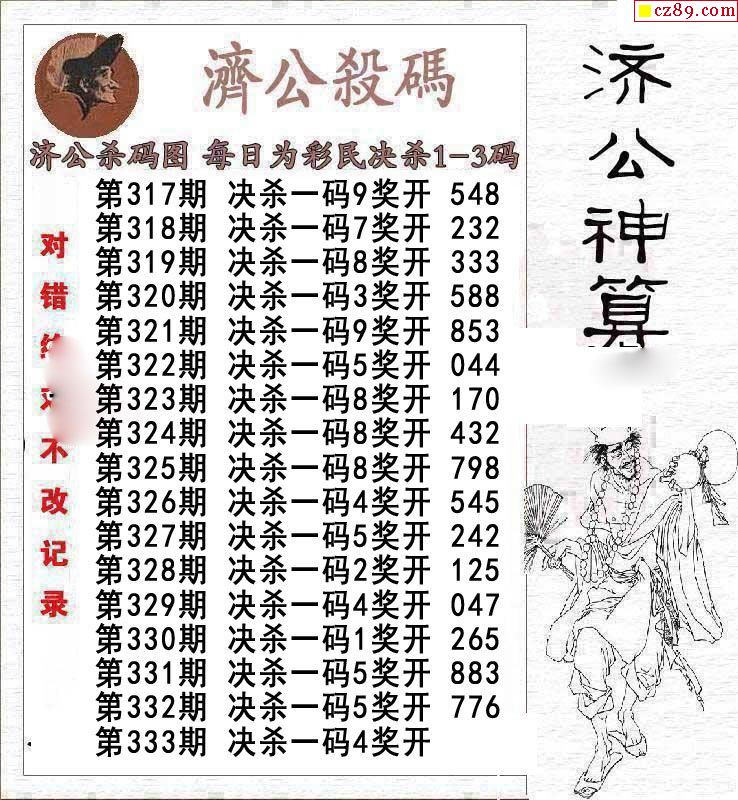 cz89.com
濟公殺碼
济公杀码图 每日为彩民决杀1-3码
第317期 决杀一码9奖开 548
第318期 决杀一码7奖开 232
第319期 决杀一码8奖开 333
第320期 决杀一码3奖开 588
第321期 决杀一码9奖开 853
第322期 决杀一码5奖开 044
第323期 决杀一码8奖开 170
第324期 决杀一码8奖开 432
第325期 决杀一码8奖开 798
第326期 决杀一码4奖开 545
第327期 决杀一码5奖开 242
第328期 决杀一码2奖开 125
第329期 决杀一码4奖开 047
第330期 决杀一码1奖开 265
第331期 决杀一码5奖开 883
第332期 决杀一码5奖开 776
第333期 决杀一码4奖开
对错不改记录
济公神算